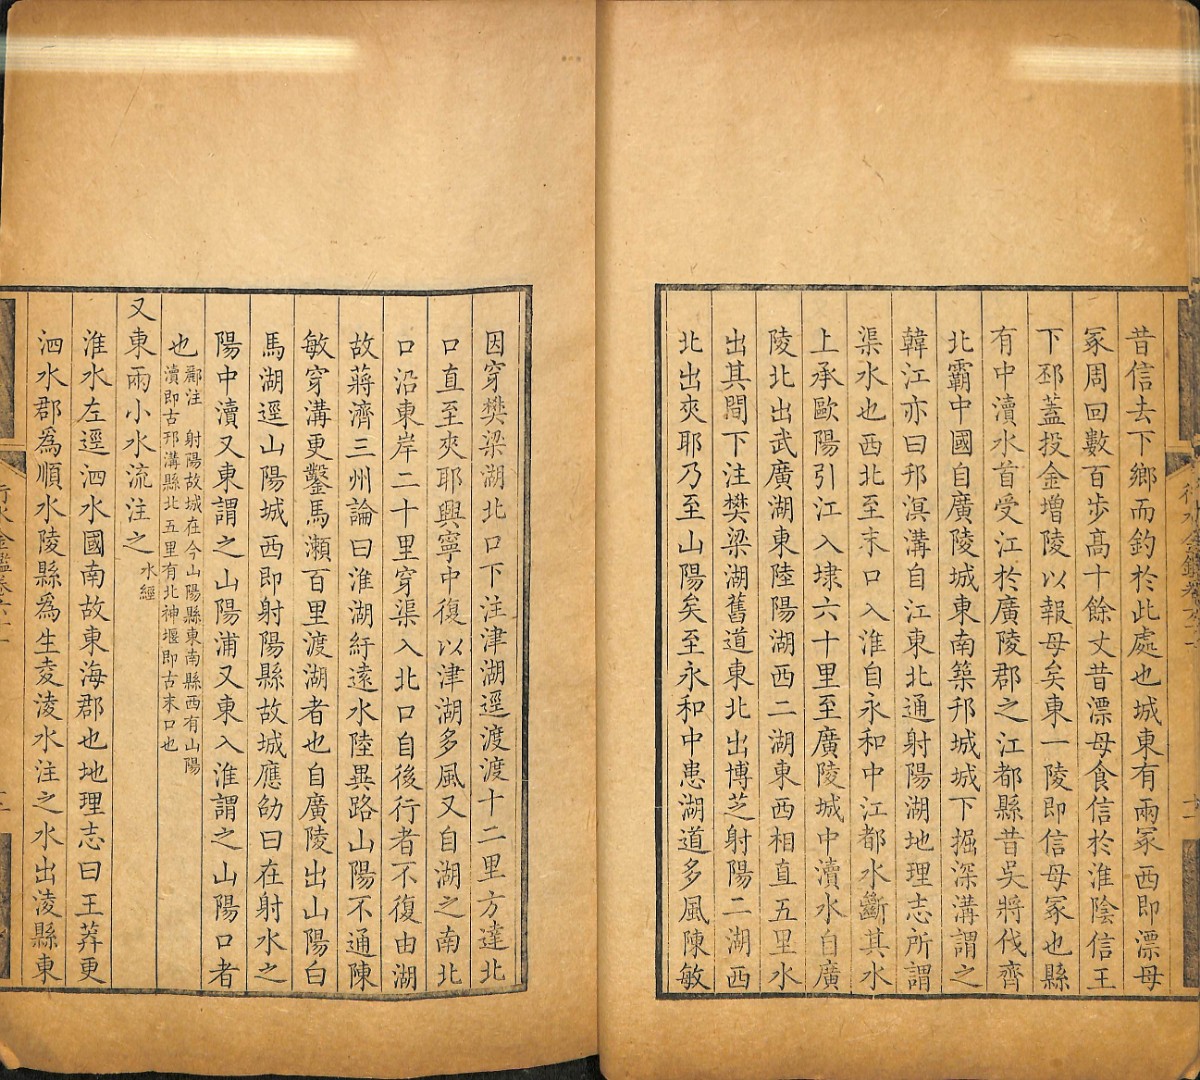 昔信去下鄉而釣於此處也城東有兩冢西即漂母
冢周回數百步高十餘丈昔漂母食信於淮陰信王
下邳蓋投金增陵以報母矣東一陵即信母冢也縣
有中瀆水首受江於廣陵郡之江都縣昔吳將伐齊
北霸中國自廣陵城東南築邗城城下掘深溝謂之
韓江亦曰邗溟溝自江東北通射陽湖地理志所謂
渠水也西北至末口入淮自永和中江都水斷其水
上承歐陽引江入埭六十里至廣陵城中瀆水自廣
陵北出武廣湖東陸陽湖西二湖東西相直五里水
出其間下注樊梁湖舊道東北出博芝射陽二湖西
北出夾耶乃至山陽矣至永和中患湖道多風陳敏
因穿樊梁湖北口下注津湖逕渡渡十二里方達北
口直至夾耶興寧中復以津湖多風又自湖之南北
口沿東岸二十里穿渠入北口自後行者不復由湖
故蔣濟三州論曰淮湖紆遠水陸異路山陽不通陳
敏穿溝更鑿馬瀨百里渡湖者也自廣陵出山陽白
馬湖逕山陽城西即射陽縣故城應劭曰在射水之
陽中瀆又東謂之山陽浦又東入淮謂之山陽口者
也酈注 射陽故城在今山陽縣東南縣西有山陽
瀆即古邗溝縣北五里有北神堰即古末口也
又東兩小水流注之水經
淮水左逕泗水國南故東海郡也地理志曰王莽更
泗水郡為順水陵縣為生夌淩水注之水出淩縣東
行水金鑑卷六十